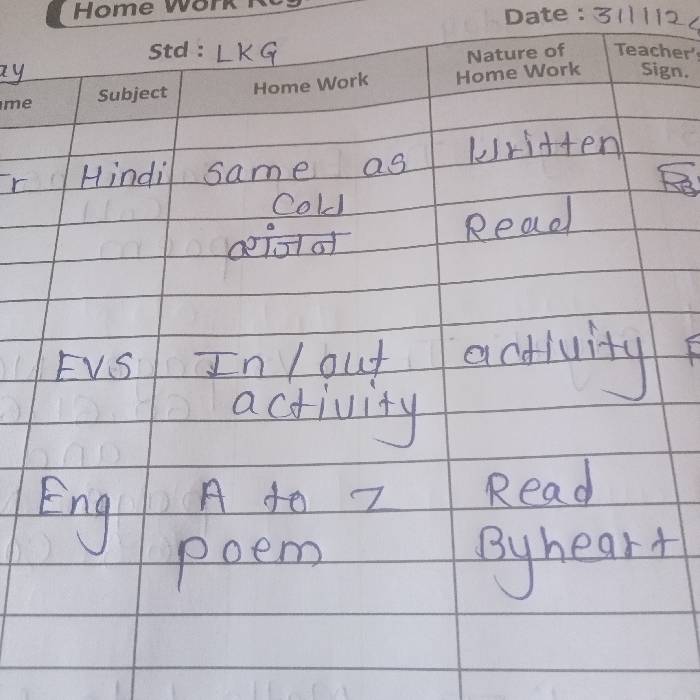 Home Work
Date :
Std : LKG
Subject Home Work Nature of Home Work Teacher's Sign.
Hindi same as Written
Cold
व्यंजन Read
EVS In/out activity
activity
Eng A to Z Read
poem Byheart